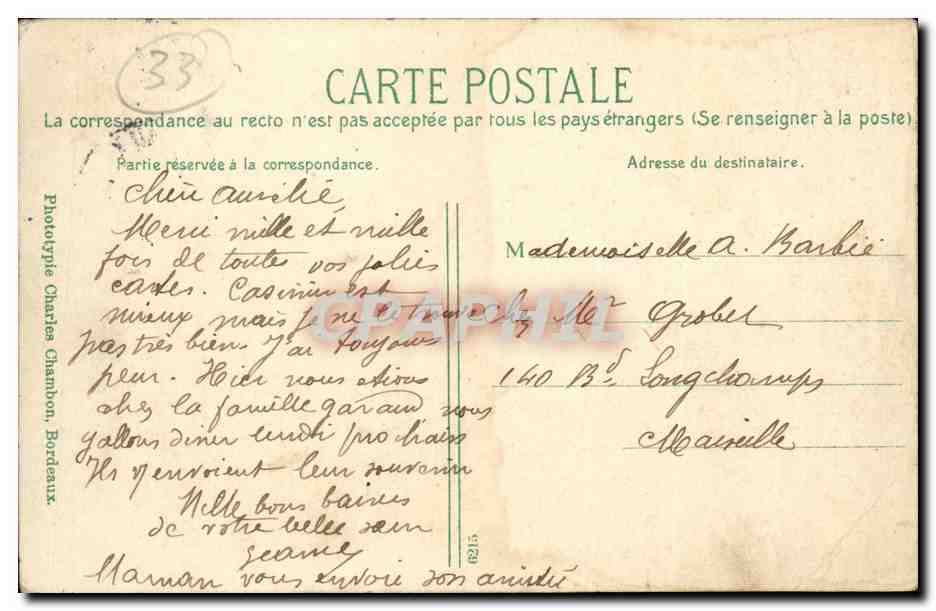 33
CARTE POSTALE
La correspondance au recto n'est pas acceptée par tous les pays étrangers (Se renseigner à la poste)
Partie réservée à la correspondance.
Adresse du destinataire.
Chère Aurélie,
Merci mille et mille
fois de toutes vos jolies
cartes. Casimir est
mieux mais je ne le trouve
pas très bien j'ai toujours
peur. Hier nous étions
chez la famille Garaud nous
y allons diner lundi prochain
Ils envoient leur souvenir
Mille bons baisers
de votre belle sœur
Jeanne
Maman vous envoie son amitié
Mademoiselle A. Barbié
chez Mr Grobet
140 Bd Longchamps
Marseille
Phototypie Charles Chambon, Bordeaux.
CPAPHIL